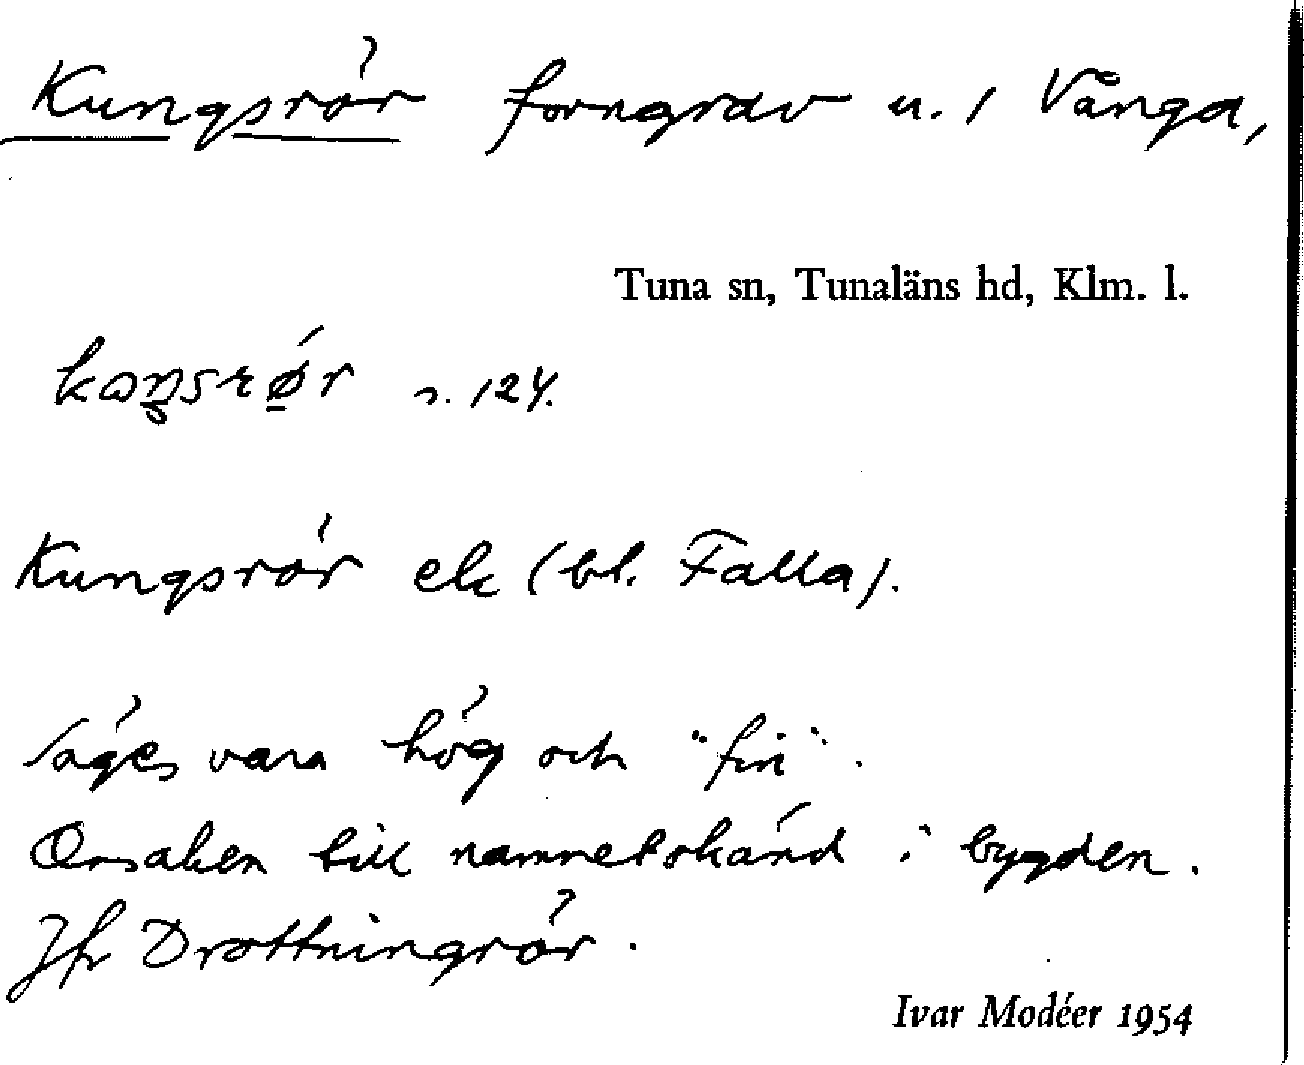 Kungsrör forngrav u. / Vånga,
Tuna sn, Tunaläns hd, Klm. l.
s. 124.
Kungsrör ek (bl. Falla).
Säges vara hög och "fin".
Orsaken till namnet okänd i bygden.
Jfr Drottningrör.
Ivar Modéer 1954